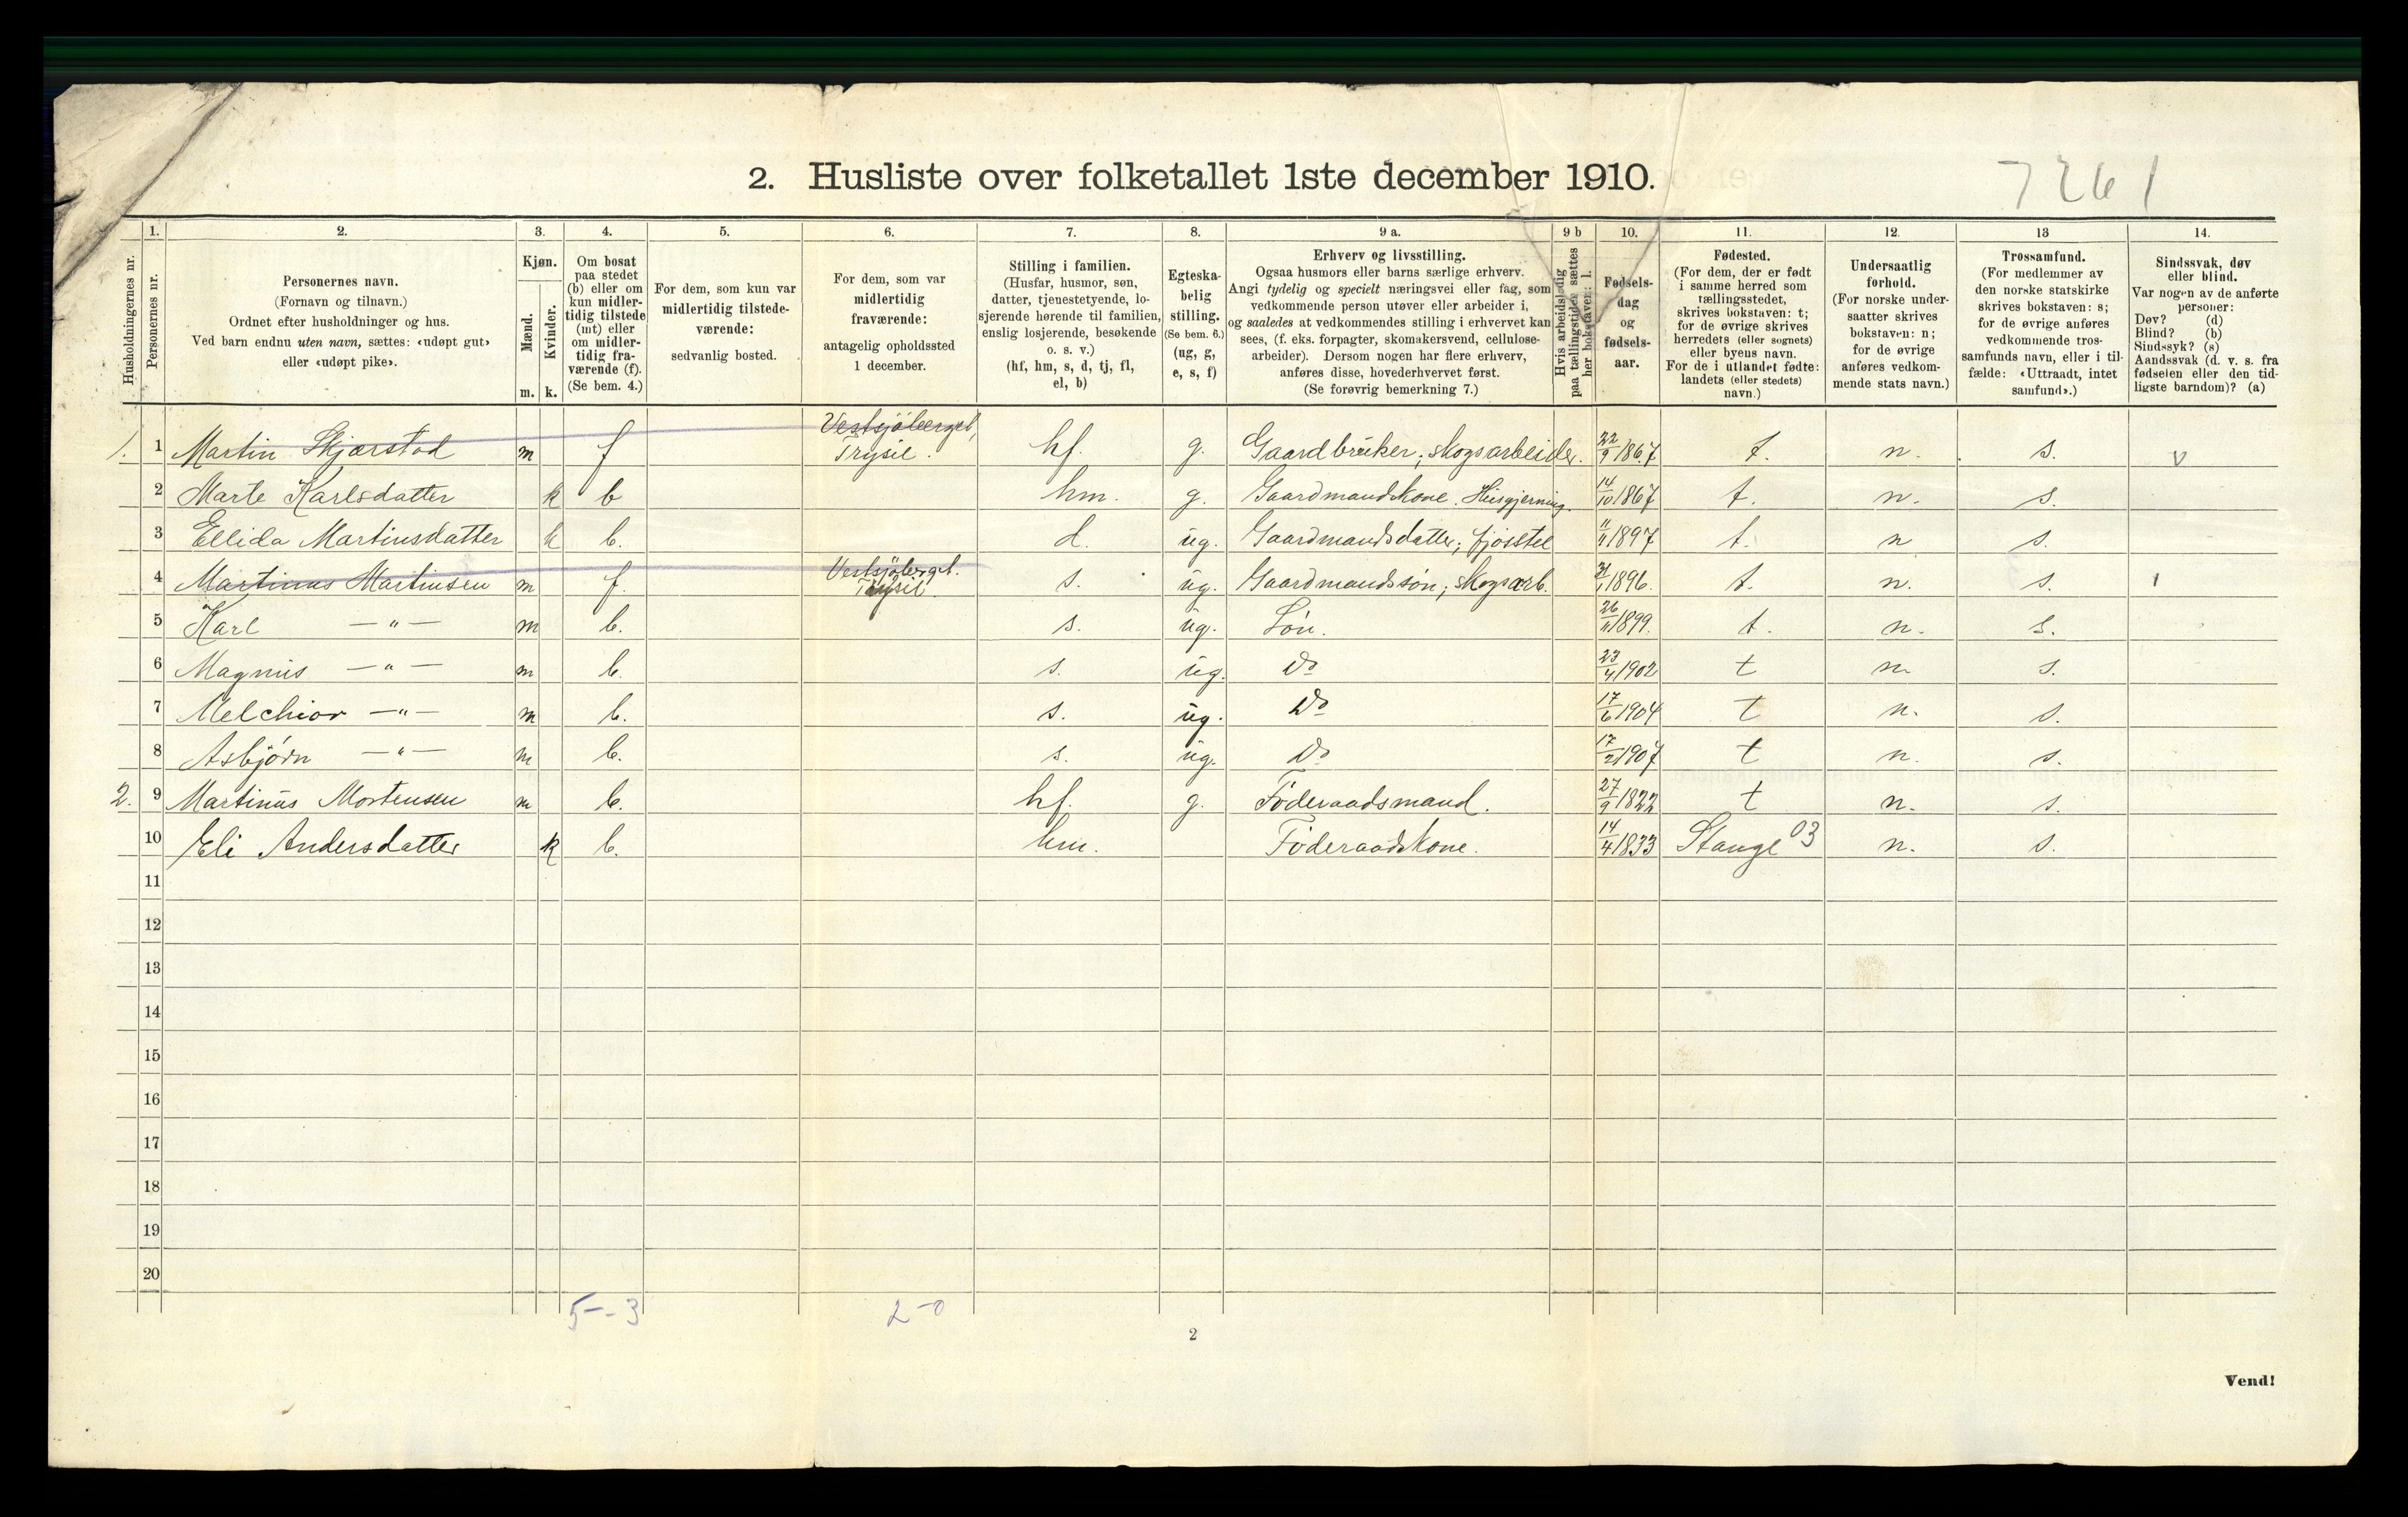 2. Husliste over folketallet 1ste december 1910.
7261
Husholdningernes nr.
1. Personernes nr.
2. Personernes navn.
(Fornavn og tilnavn.)
Ordnet efter husholdninger og hus.
Ved barn endnu uten navn, sættes: «udøpt gut»
eller «udøpt pike».
3. Kjøn.
Mænd. m.
Kvinder. k.
4. Om bosat
paa stedet
(b) eller om
kun midler-
tidig tilstede
(mt) eller
om midler-
tidig fra-
værende (f).
(Se bem. 4.)
5. For dem, som kun var
midlertidig tilstede-
værende:
sedvanlig bosted.
6. For dem, som var
midlertidig
fraværende:
antagelig opholdssted
1 december.
7. Stilling i familien.
(Husfar, husmor, søn,
datter, tjenestetyende, lo-
sjerende hørende til familien,
enslig losjerende, besøkende
o. s. v.)
(hf, hm, s, d, tj, fl,
el, b)
8. Egteska-
belig
stilling.
(Se bem. 6.)
(ug, g,
e, s, f)
9 a. Erhverv og livsstilling.
Ogsaa husmors eller barns særlige erhverv.
Angi tydelig og specielt næringsvei eller fag, som
vedkommende person utøver eller arbeider i,
og saaledes at vedkommendes stilling i erhvervet kan
sees, (f. eks. forpagter, skomakersvend, cellulose-
arbeider). Dersom nogen har flere erhverv,
anføres disse, hovederhvervet først.
(Se forøvrig bemerkning 7.)
9 b Hvis arbeidsledig
paa tællingstiden sættes
her bokstaven: l.
10. Fødsels-
dag
og
fødsels-
aar.
11. Fødested.
(For dem, der er født
i samme herred som
tællingsstedet,
skrives bokstaven: t;
for de øvrige skrives
herredets (eller sognets)
eller byens navn.
For de i utlandet fødte:
landets (eller stedets)
navn.)
12. Undersaatlig
forhold.
(For norske under-
saatter skrives
bokstaven: n;
for de øvrige
anføres vedkom-
mende stats navn.)
13 Trossamfund.
(For medlemmer av
den norske statskirke
skrives bokstaven: s;
for de øvrige anføres
vedkommende tros-
samfunds navn, eller i til-
fælde: «Uttraadt, intet
samfund».)
14. Sindssvak, døv
eller blind.
Var nogen av de anførte
personer:
Døv? (d)
Blind? (b)
Sindssyk? (s)
Aandssvak (d. v. s. fra
fødselen eller den tid-
ligste barndom)? (a)
1. 1 Martin Skjærstad m f Vestsjöberget, Trysil. hf. g. Gaardbruker; skogsarbeider. 22/9 1867 t. n. s. v
2 Marte Karlsdatter k b hm. g. Gaardmandskone. Husgjerning. 14/10 1867 t. n. s.
3 Ellida Martinsdatter k b. d. ug. Gaardmandsdatter; fjøsstel 11/11 1897 t. n s.
4 Martinus Martinsen m f. Vestsjöberget. Trysil s. ug. Gaardmandssøn; skogsarb. 1896. t. n. s.
5 Karl —"— m b. s. ug. Søn. 26/11 1899. t. n. s.
6 Magnus —"— m b. s. ug. Do 23/4 1902 t n. s.
7 Melchior —"— m b. s. ug. Do 17/6 1904 t n. s.
8 Asbjørn —"— m b. s. ug. Do 17/2 1907 t n. s.
2. 9 Martinus Mortensen m b. hf. g. Føderaadsmand. 27/9 1822 t n. s.
10 Eli Andersdatter k b. hm. Føderaadskone. 14/4 1833 Stange 03 n. s.
11
12
13
14
15
16
17
18
19
20
5 - 3
2 - 0
2
Vend!